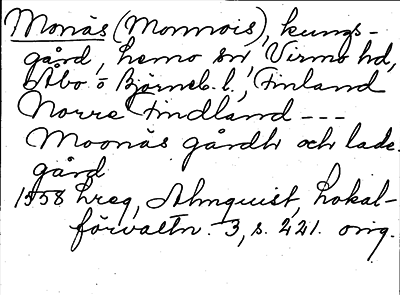 Monäs (Monnois), kungs-
gård, Lemo sn, Virmo hd,
Åbo o Björneb. l., Finland
Norre Findland ---
Moonäs gårdh och lade-
gård
1558 hreg, Almquist, Lokal-
förvaltn. 3, s. 221. orig.